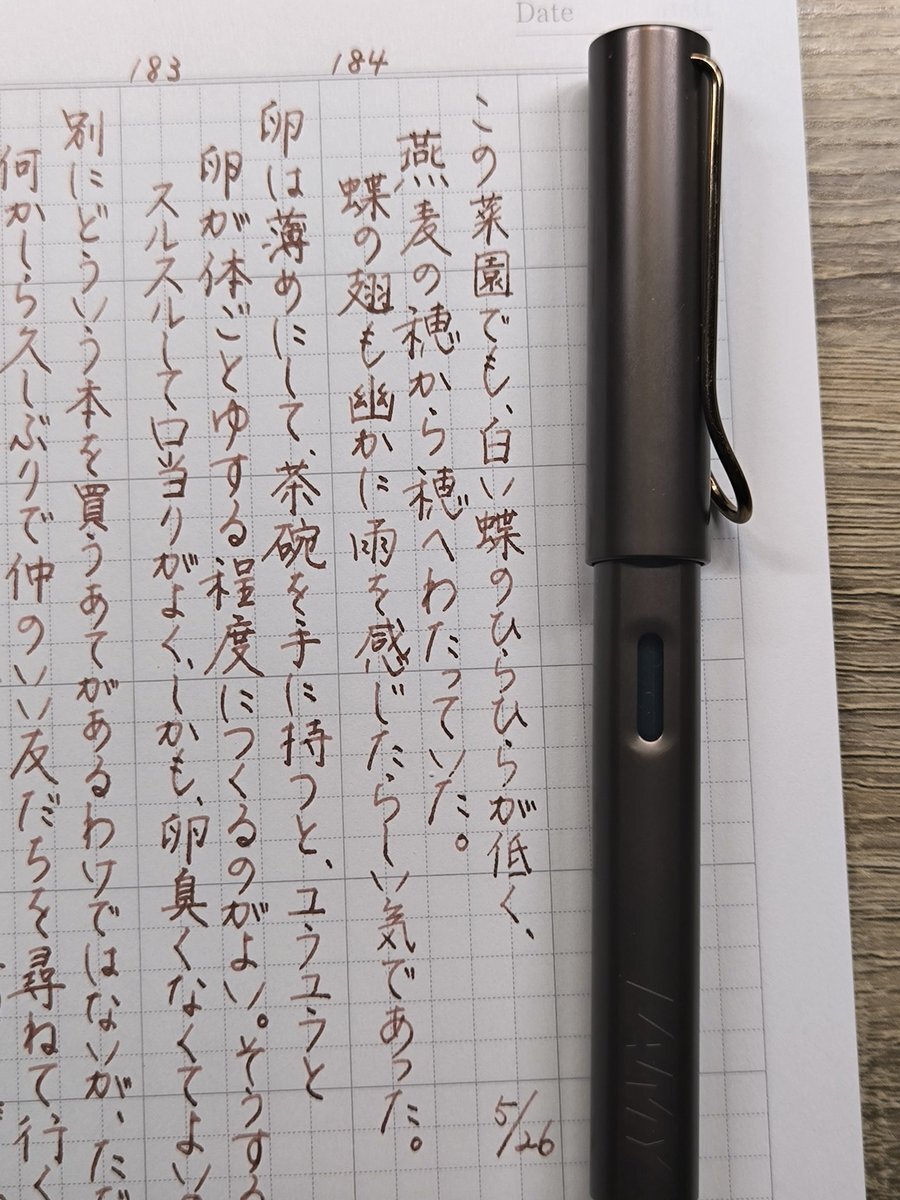 Date
184
この菜園でも、白い蝶のひらひらが低く、
燕麦の穂から穂へわたっていた。
蝶の翅も幽かに雨を感じたらしい気であった。
5/26
183
卵は薄めにして、茶碗を手に持つと、ユラユラと
卵が体ごとゆする程度につくるのがよい。そうする
スルスルして口当りがよく、しかも、卵臭くなくてよい
別にどういう本を買うあてがあるわけではないが、ただ
何かしら久しぶりで仲のいい友だちを尋ねて行く
LAMY